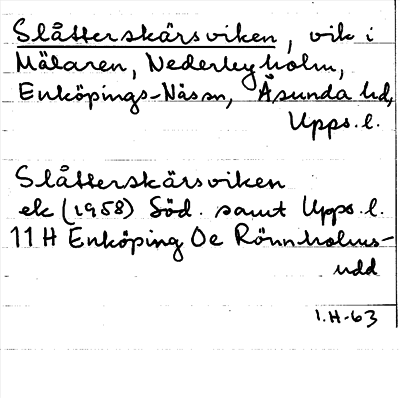 Slåtterskärsviken, vik i
Mälaren, Nederbyholm,
Enköpings-Näs sn, Åsunda hd,
Upps. l.
Slåtterskärsviken
ek (1958) Söd. samt Upps. l.
11 H Enköping Oe Rönnholms-
udd
1.H-63